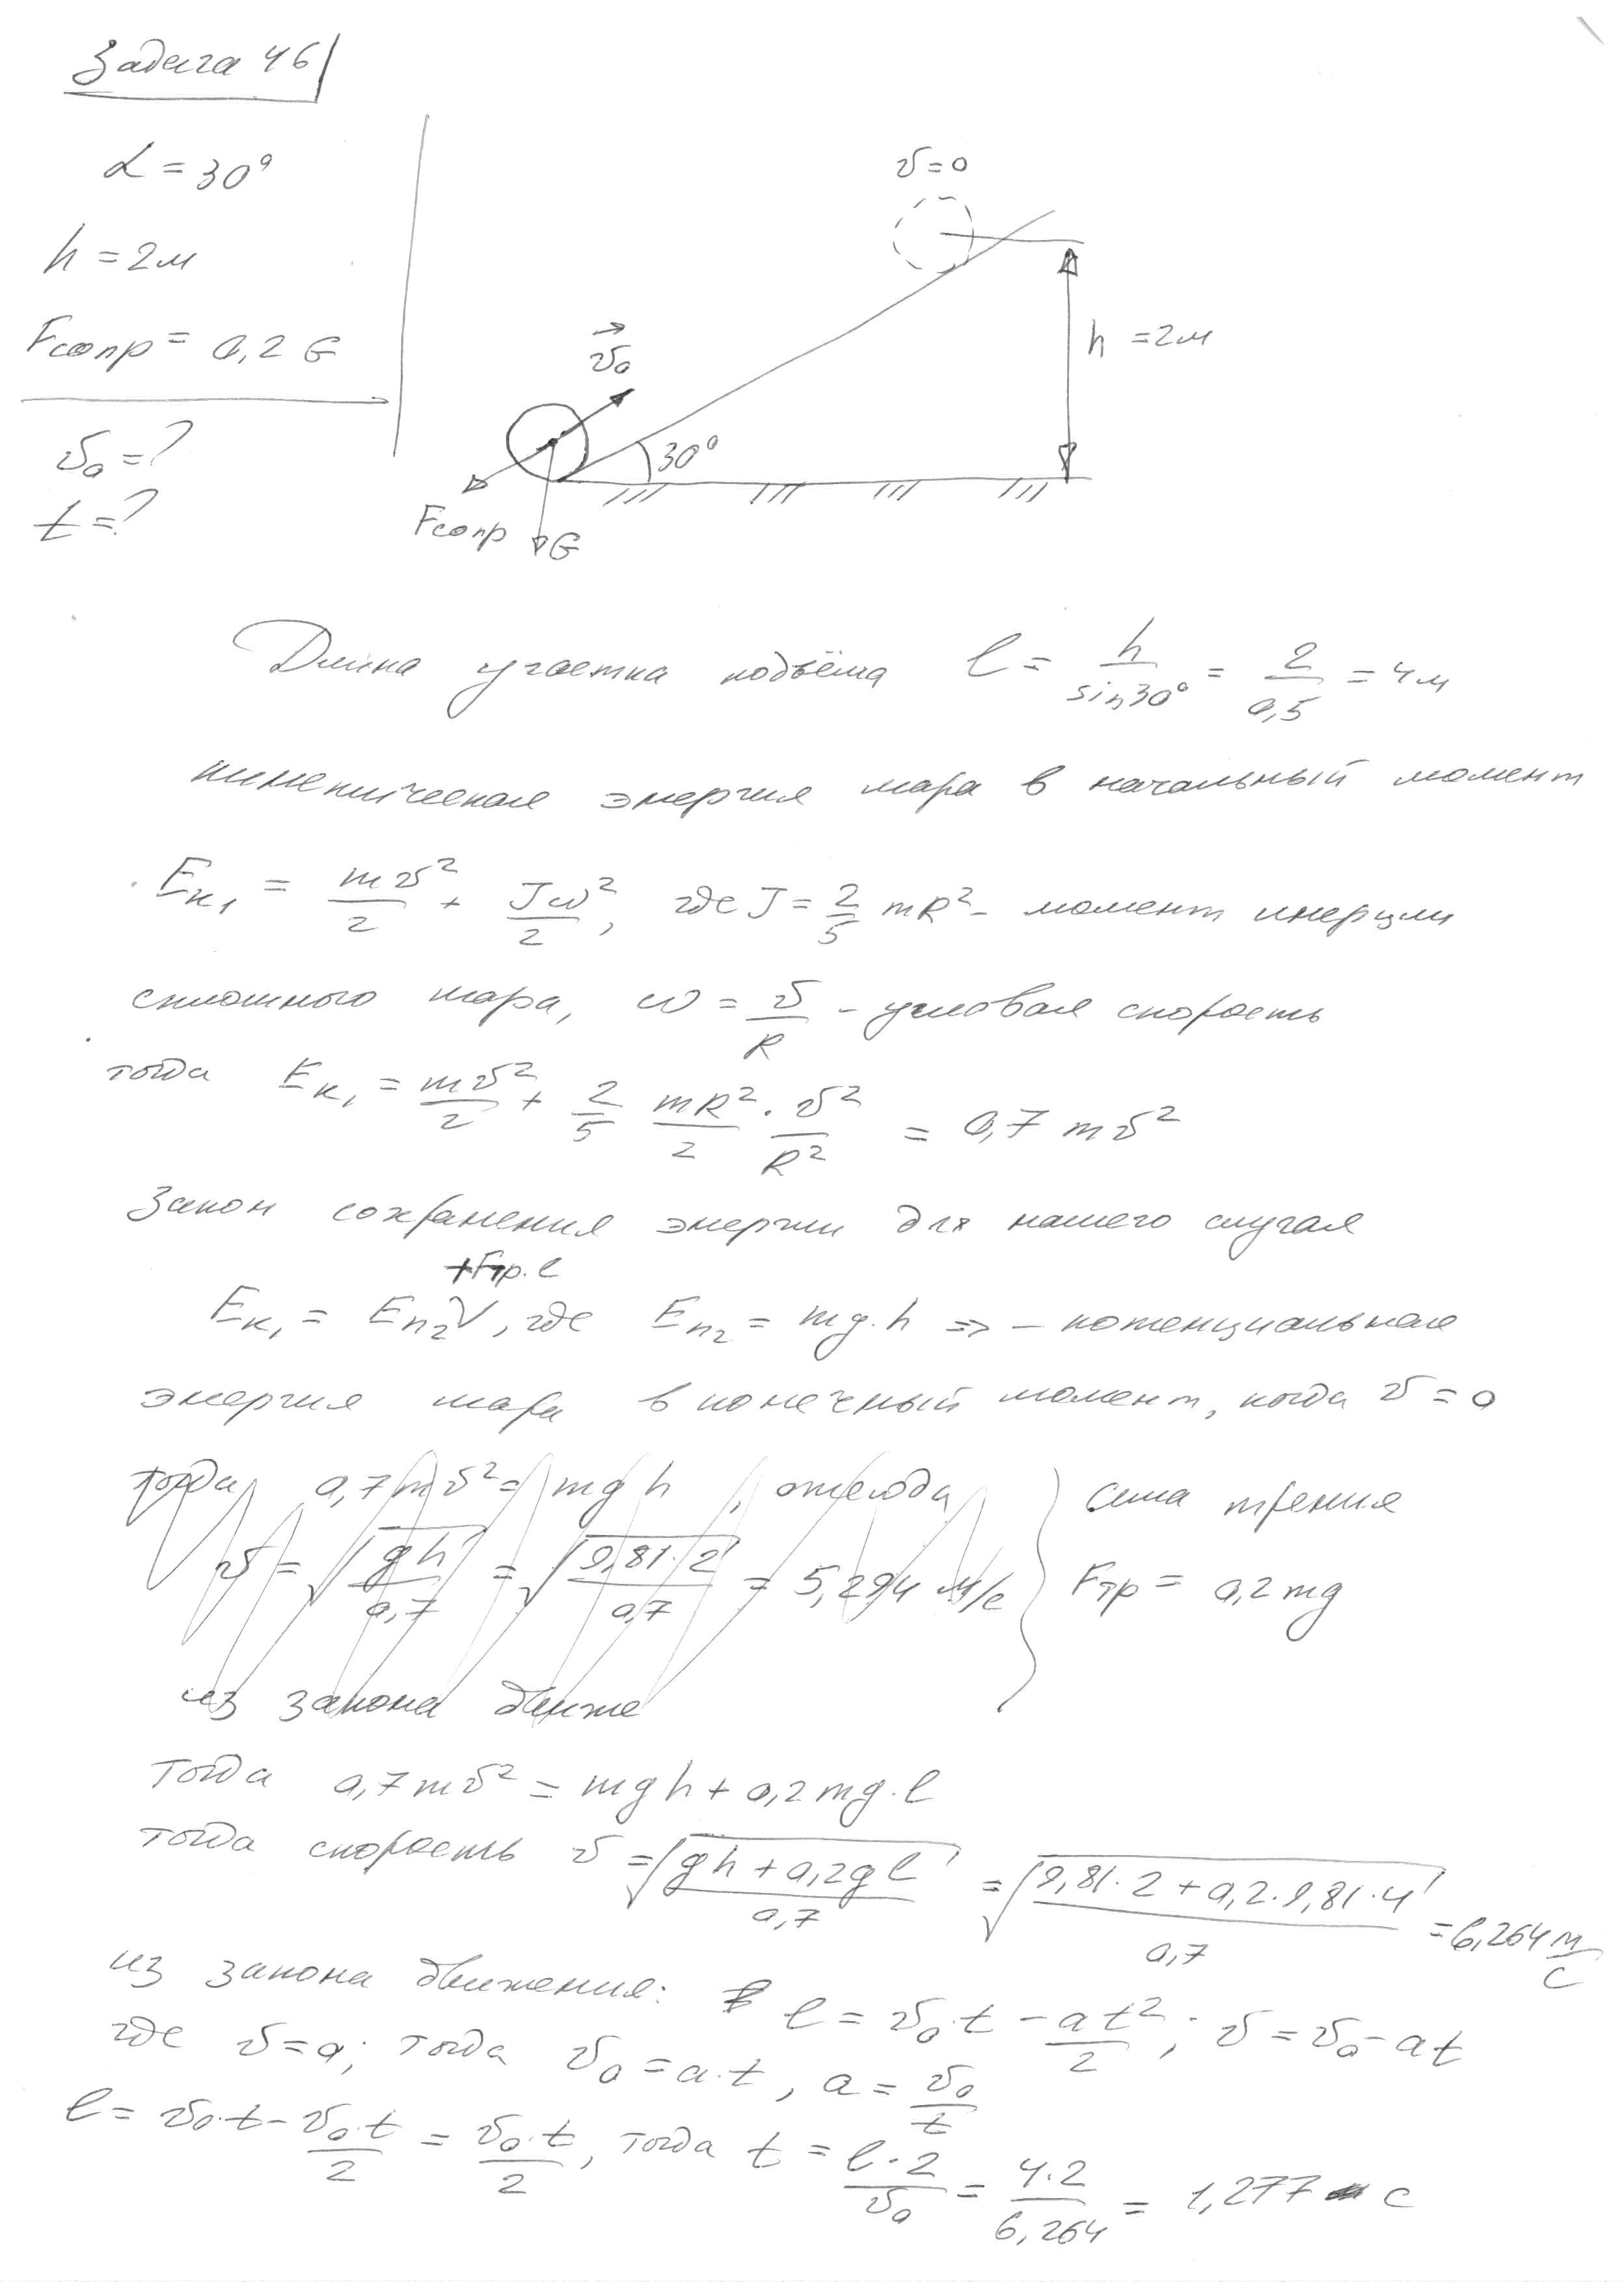 Задача 46
α = 30°
h = 2м
Fсопр = 0,2 G
v₀ = ?
t = ?
v = 0
v₀
30°
h = 2м
Fсопр
G
Длина участка подъёма l = h/sin30° = 2/0,5 = 4м
кинетическая энергия шара в начальный момент
Eк₁ = mv²/2 + Jω²/2, где J = 2/5 mR² - момент инерции
сплошного шара, ω = v/R - угловая скорость
тогда Eк₁ = mv²/2 + 2/5 mR²/2 · v²/R² = 0,7 mv²
Закон сохранения энергии для нашего случая
+Fтр. l
Eк₁ = Eп₂ V, где Eп₂ = mg.h => - потенциальная
энергия шара в конечный момент, когда v = 0
тогда 0,7mv² = mgh, отсюда
v = √(gh/0,7) = √(9,81·2/0,7) = 5,294 м/с
Сила трения
Fтр = 0,2mg
из закона движе
тогда 0,7mv² = mgh + 0,2mg.l
тогда скорость v = √((gh + 0,2gl)/0,7) = √((9,81·2 + 0,2·9,81·4)/0,7) = 6,264 м/с
из закона движения: l = v₀t - at²/2; v = v₀ - at
где v = 0; тогда v₀ = a·t, a = v₀/t
l = v₀·t - v₀·t/2 = v₀·t/2, тогда t = l·2/v₀ = 4·2/6,264 = 1,277 с